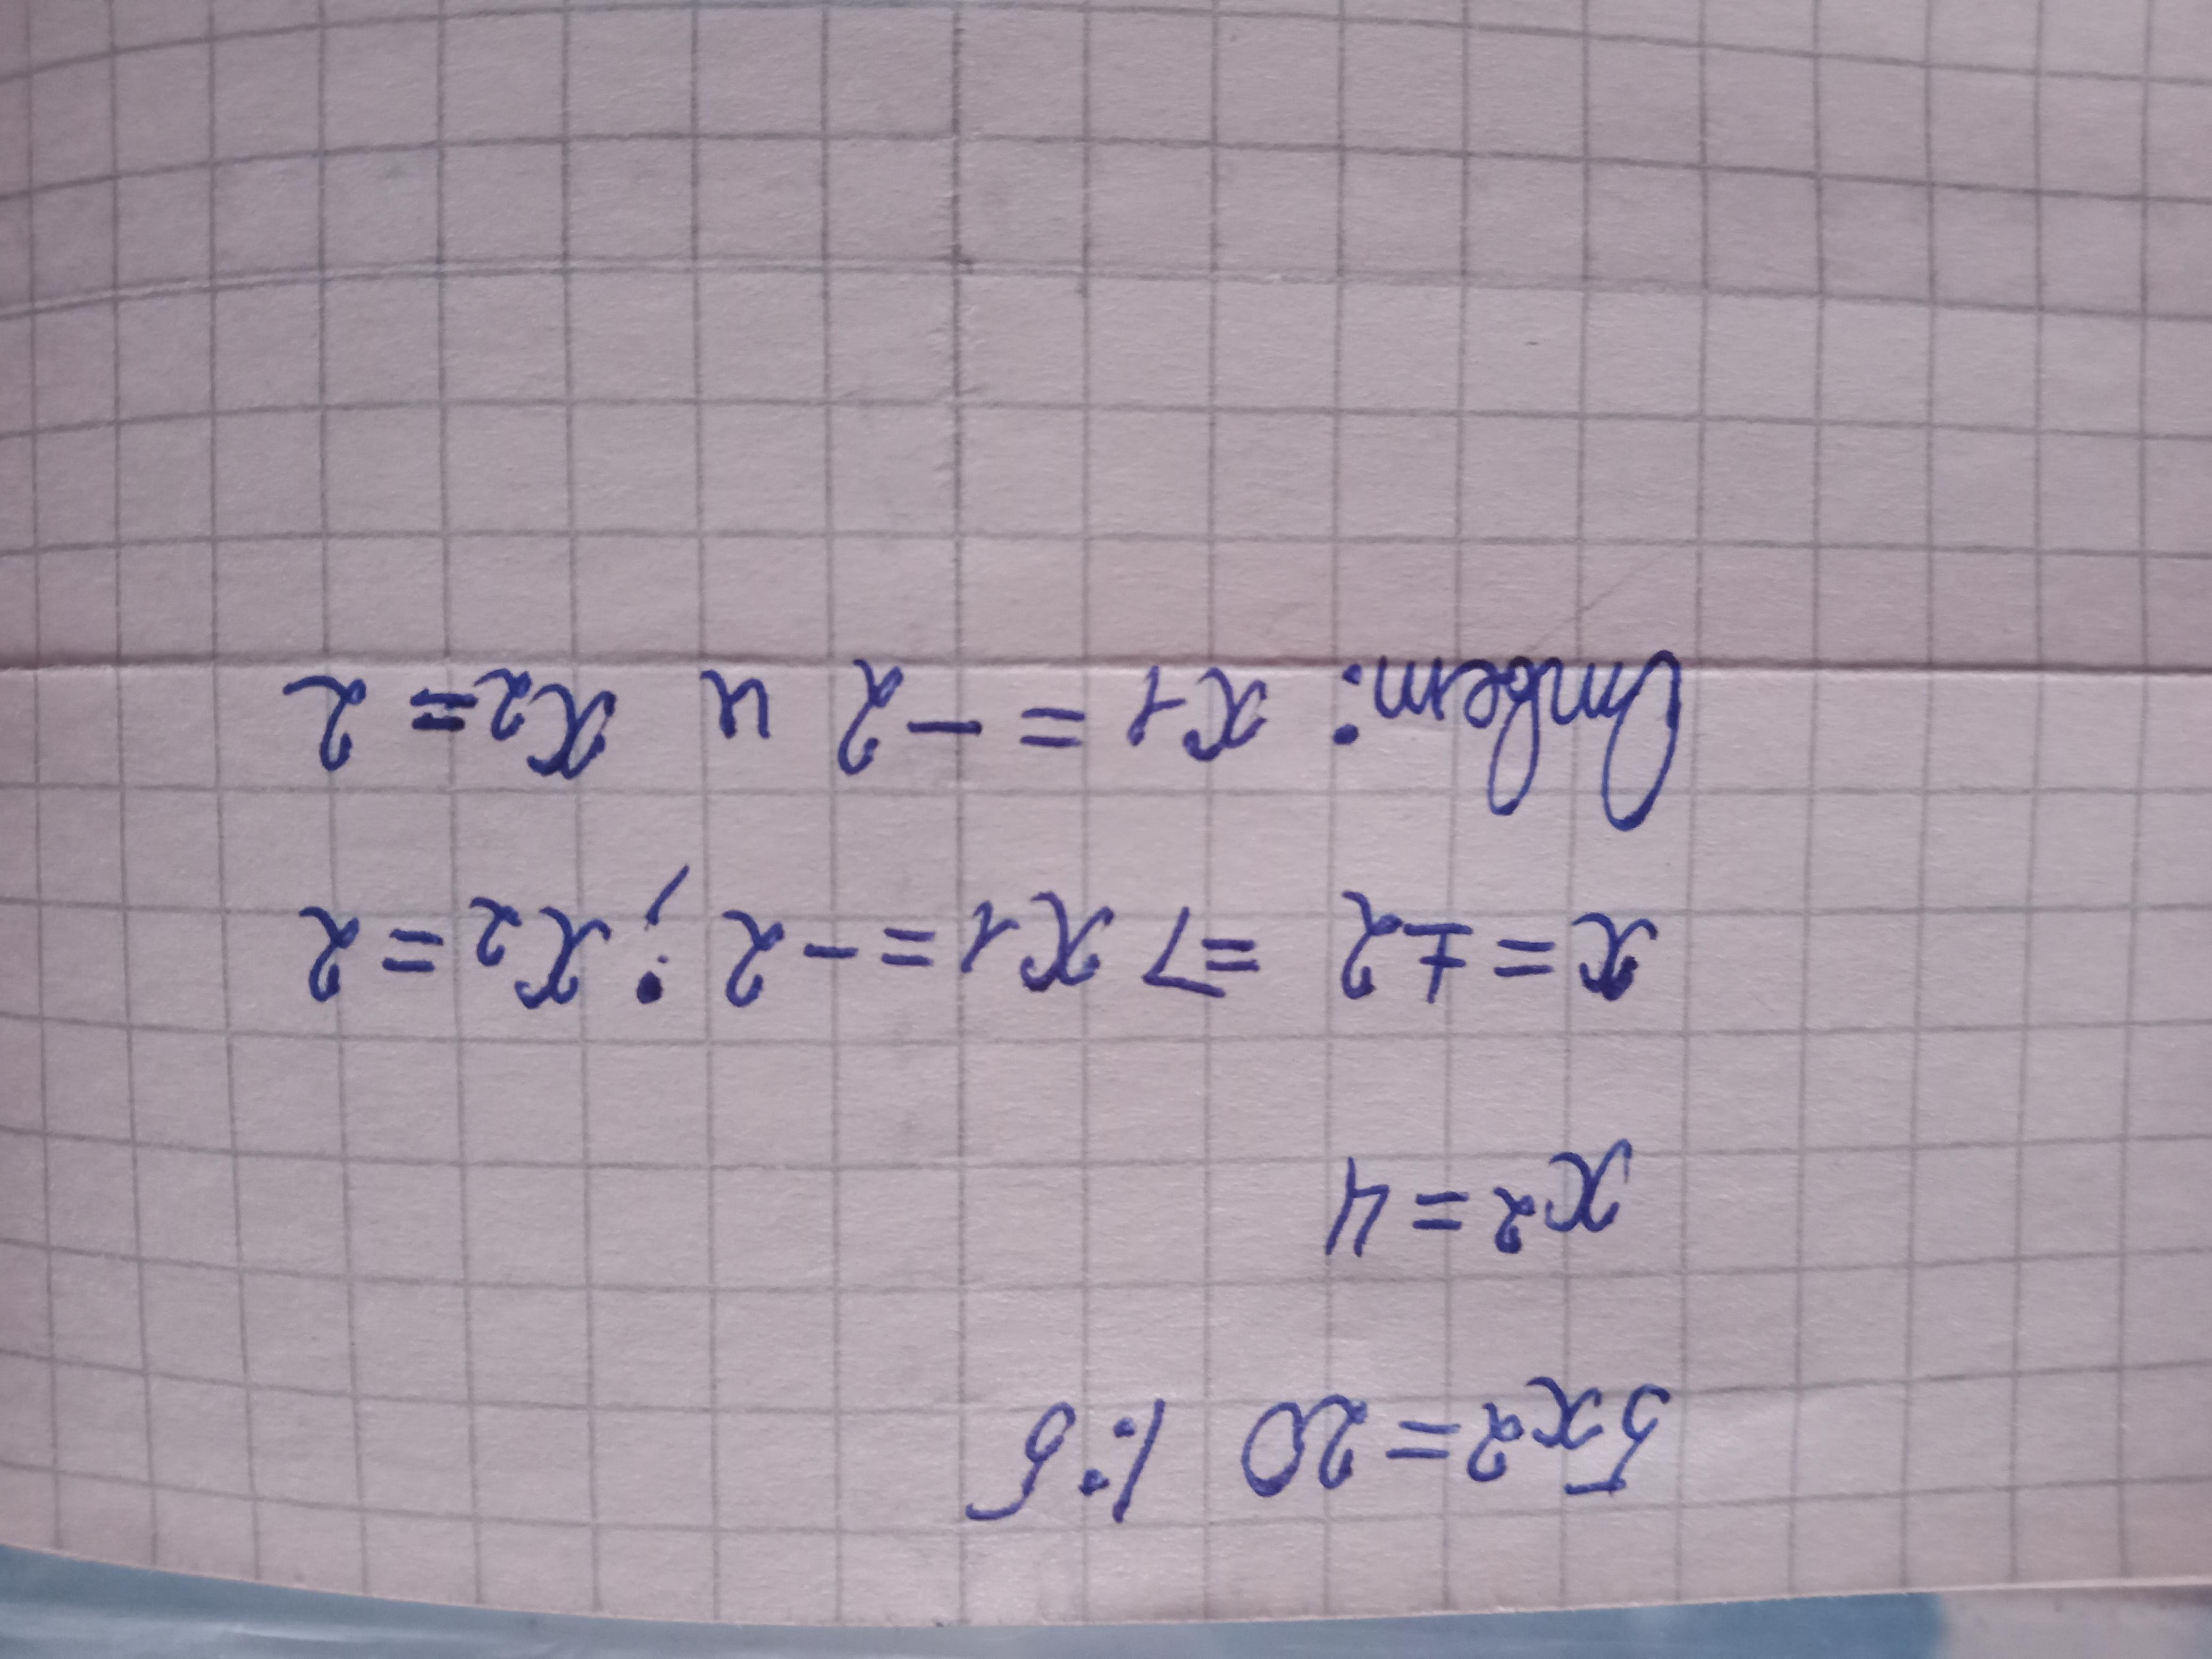 5x2=20 |:5
x2=4
x=±2 => x1=-2; x2=2
Ответ: x1=-2 и x2=2